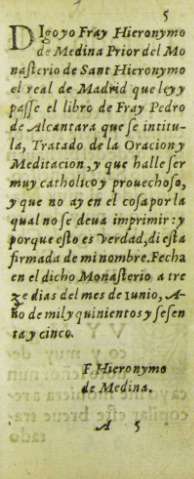 5
DIgo yo Fray Hieronymo
de Medina Prior del Mo
nasterio de Sant Hieronymo
el real de Madrid que ley y
passe el libro de Fray Pedro
de Alcantara que se intitu-
la, Tratado de la Oracion y
Meditacion, y que halle ser
muy catholico y prouechoso,
y que no ay en el cosa por la
qual no se deua imprimir: y
porque esto es Verdad, di esta
firmada de mi nombre. Fecha
en el dicho Monasterio a tre
ze dias del mes de Iunio, A-
ño de mil y quinientos y sesen
ta y cinco.
F. Hieronymo
de Medina.
A 5